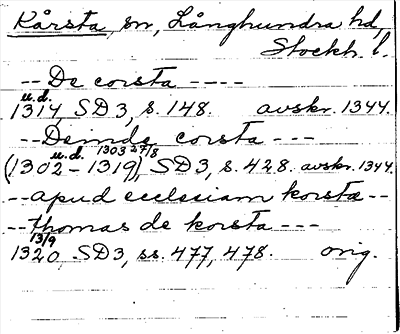 Kårsta, sn, Långhundra hd,
Stockh. l.
-- De corsta ----
u.d.
1314, SD3, s. 148. avskr. 1344.
-- Deinde corsta ---
u.d. 1303 27/8
(1302-1319), SD3, s. 428. avskr. 1344.
-- apud ecclesiam korsta --
-- thomas de korsta ---
13/9
1320, SD3, ss. 477, 478. orig.